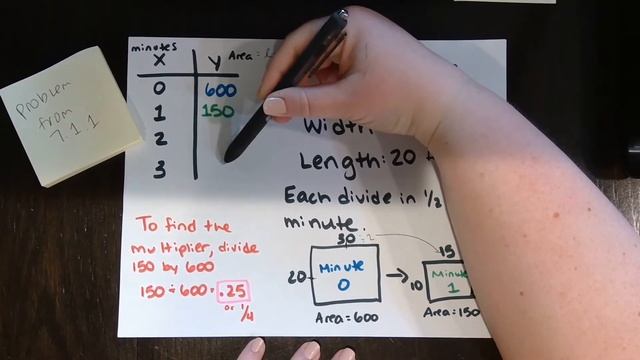 Problem
from
7.1.1
minutes
X Y
Area =
0 600
1 150
2
3
Width
Length: 20
Each divide in 1/2
minute.
To find the
multiplier, divide
150 by 600
150 ÷ 600 = .25
or 1/4
30 ÷ 2 15
20 Minute
0
10 Minute
1
Area = 600
Area = 150